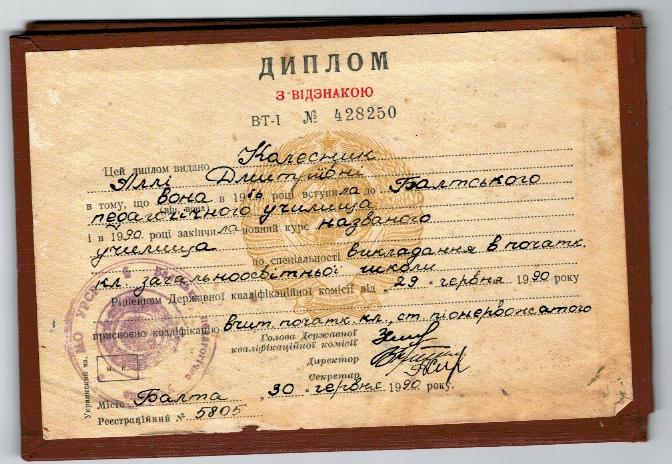 ДИПЛОМ
З ВІДЗНАКОЮ
ВТ-І № 428250
Цей диплом видано Колесник
Аллі Дмитрівні
в тому, що вона в 1986 році вступила до Балтського
(він, вона)
педагогічного училища
і в 1990 році закінчила повний курс названого
училища по спеціальності викладання в початк.
кл. загальноосвітньої школи
Рішенням Державної кваліфікаційної комісії від „29" червня 1990 року
присвоєно кваліфікацію вчит. початк. кл., ст. піонервожатого
Голова Державної
кваліфікаційної комісії
Директор
Секретар
М. П.
Місто Балта „30" червня 1990 року.
Реєстраційний № 5805
Украинский яз.